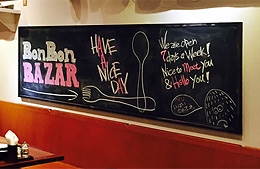 BonBon
BAZAR
HAVE
A
NICE
DAY
We are open
7 days a Week!
Nice to Meet You
& Hello You!